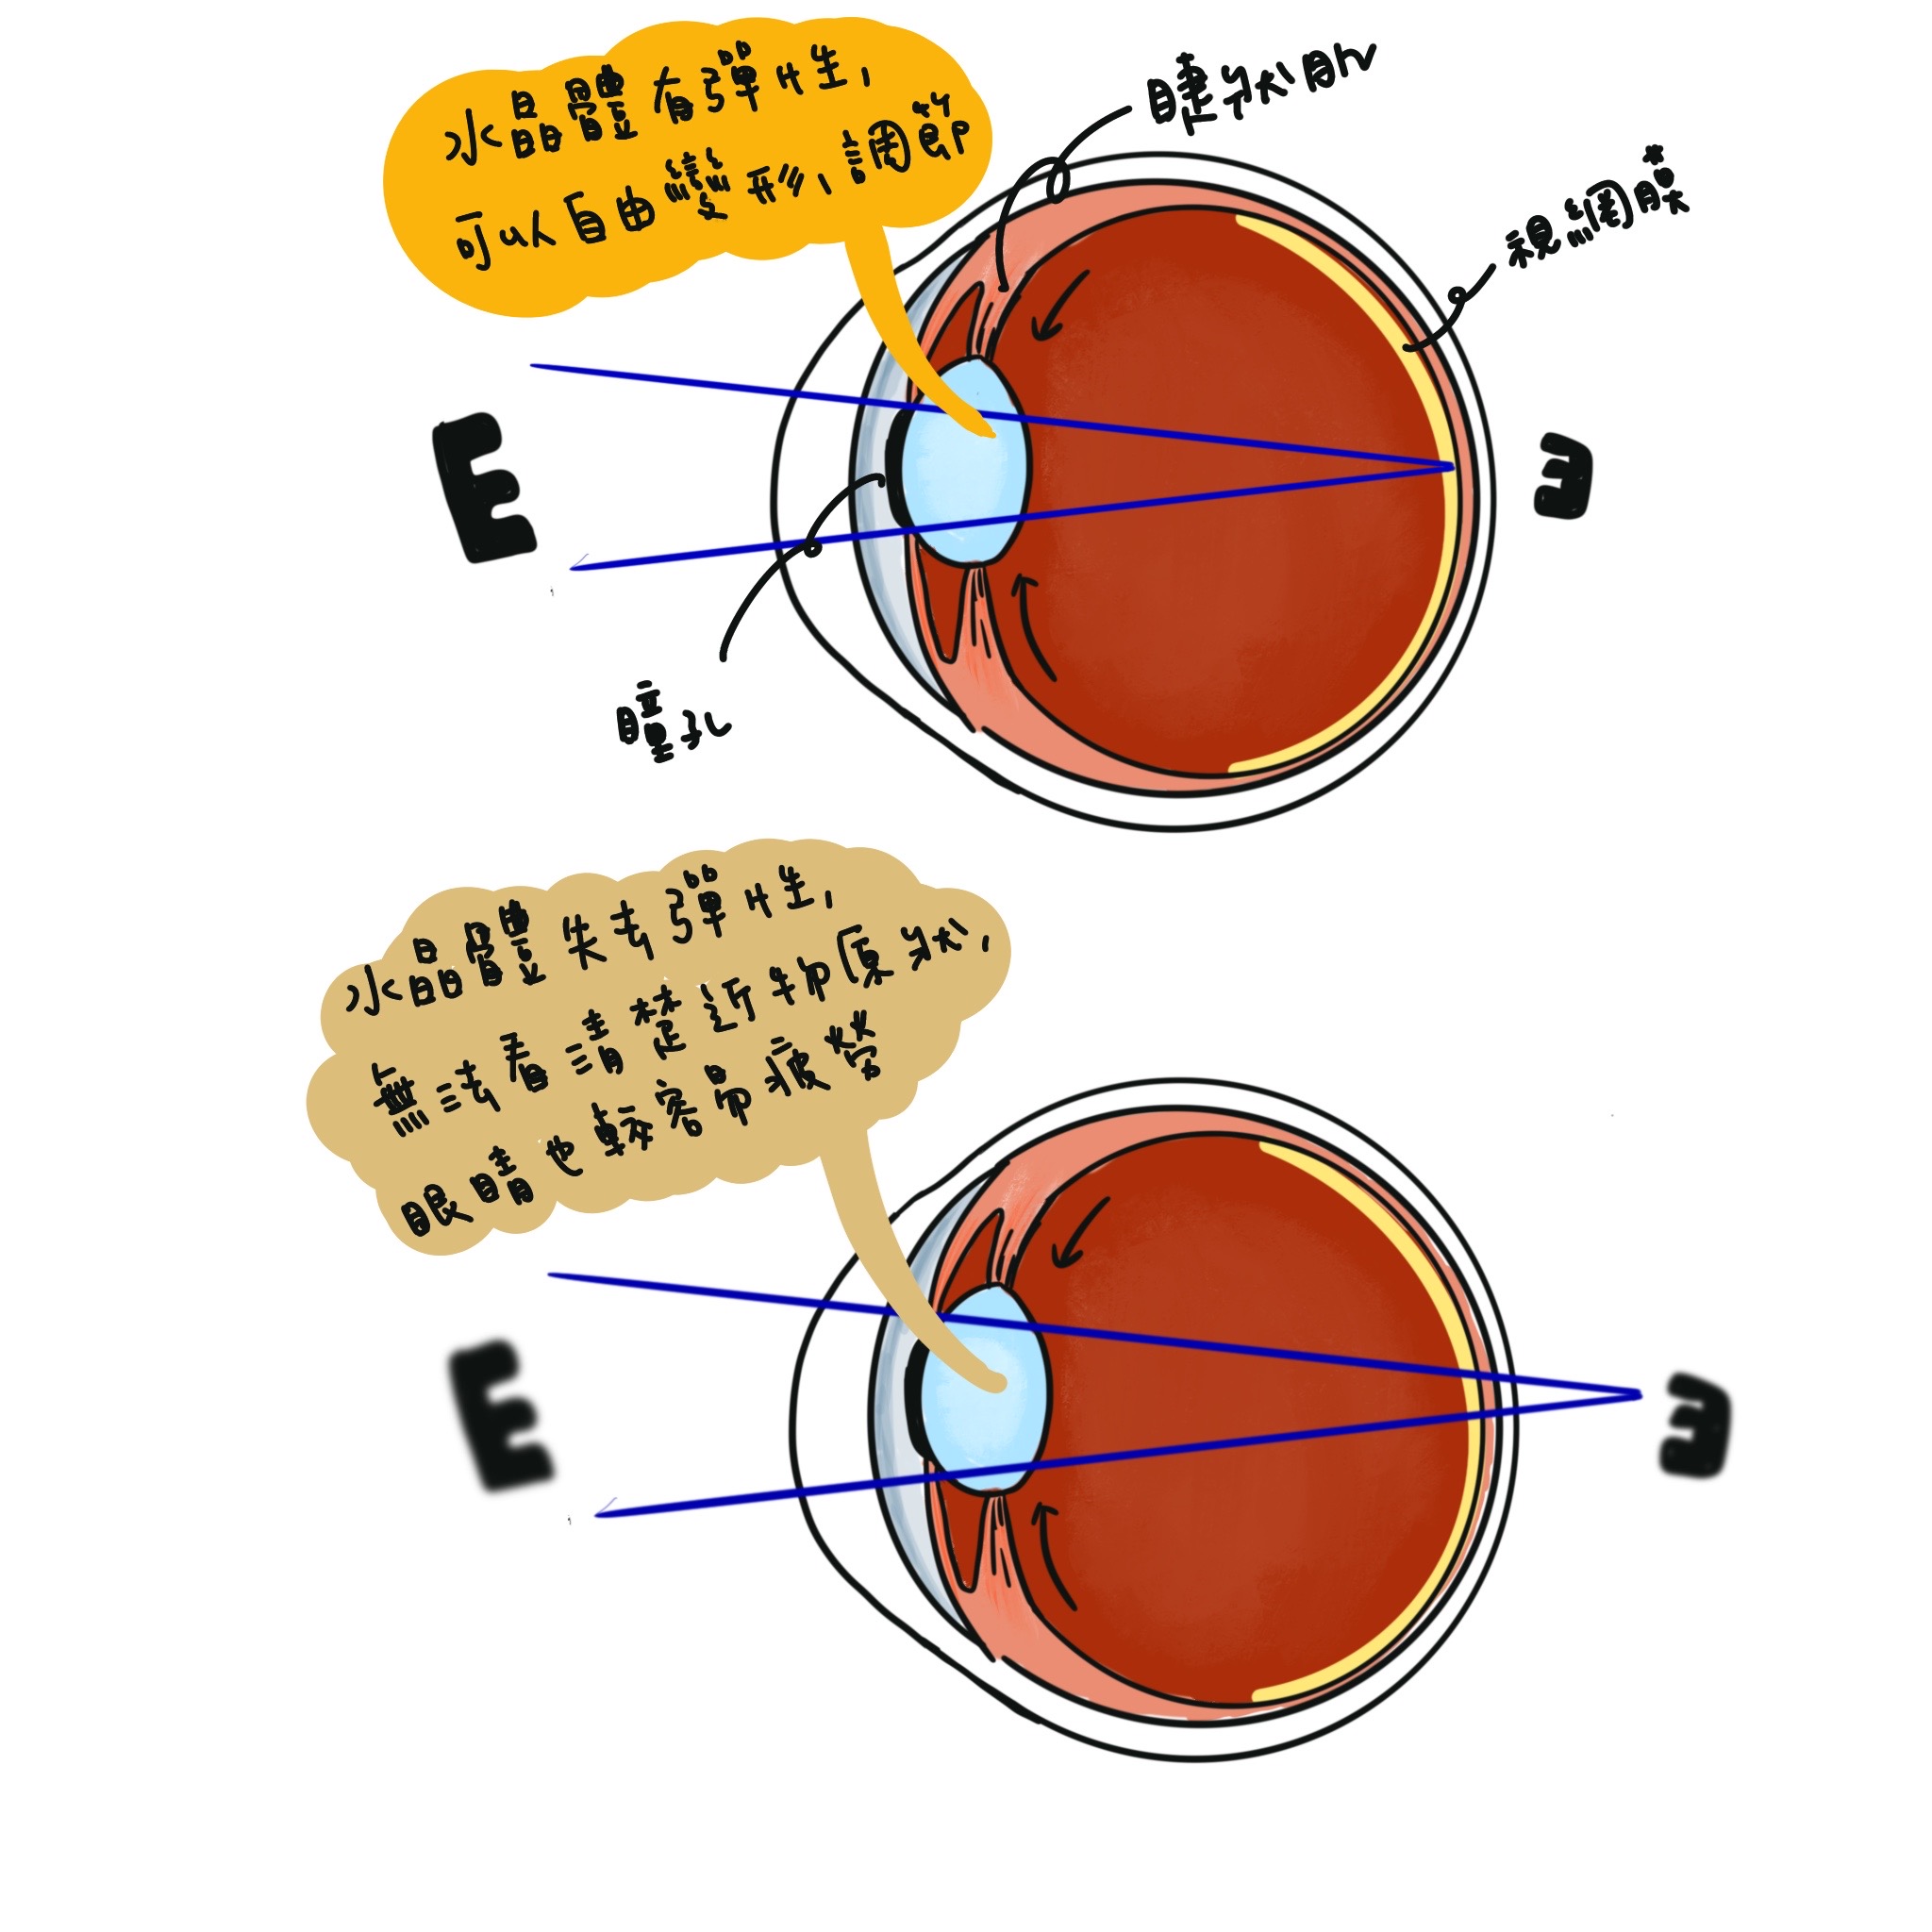 水晶體有彈性,
可以自由變形,調節
睫狀肌
視網膜
E
E
瞳孔
水晶體失去彈性,
無法看清楚近物原狀,
眼睛也較容易疲勞
E
E